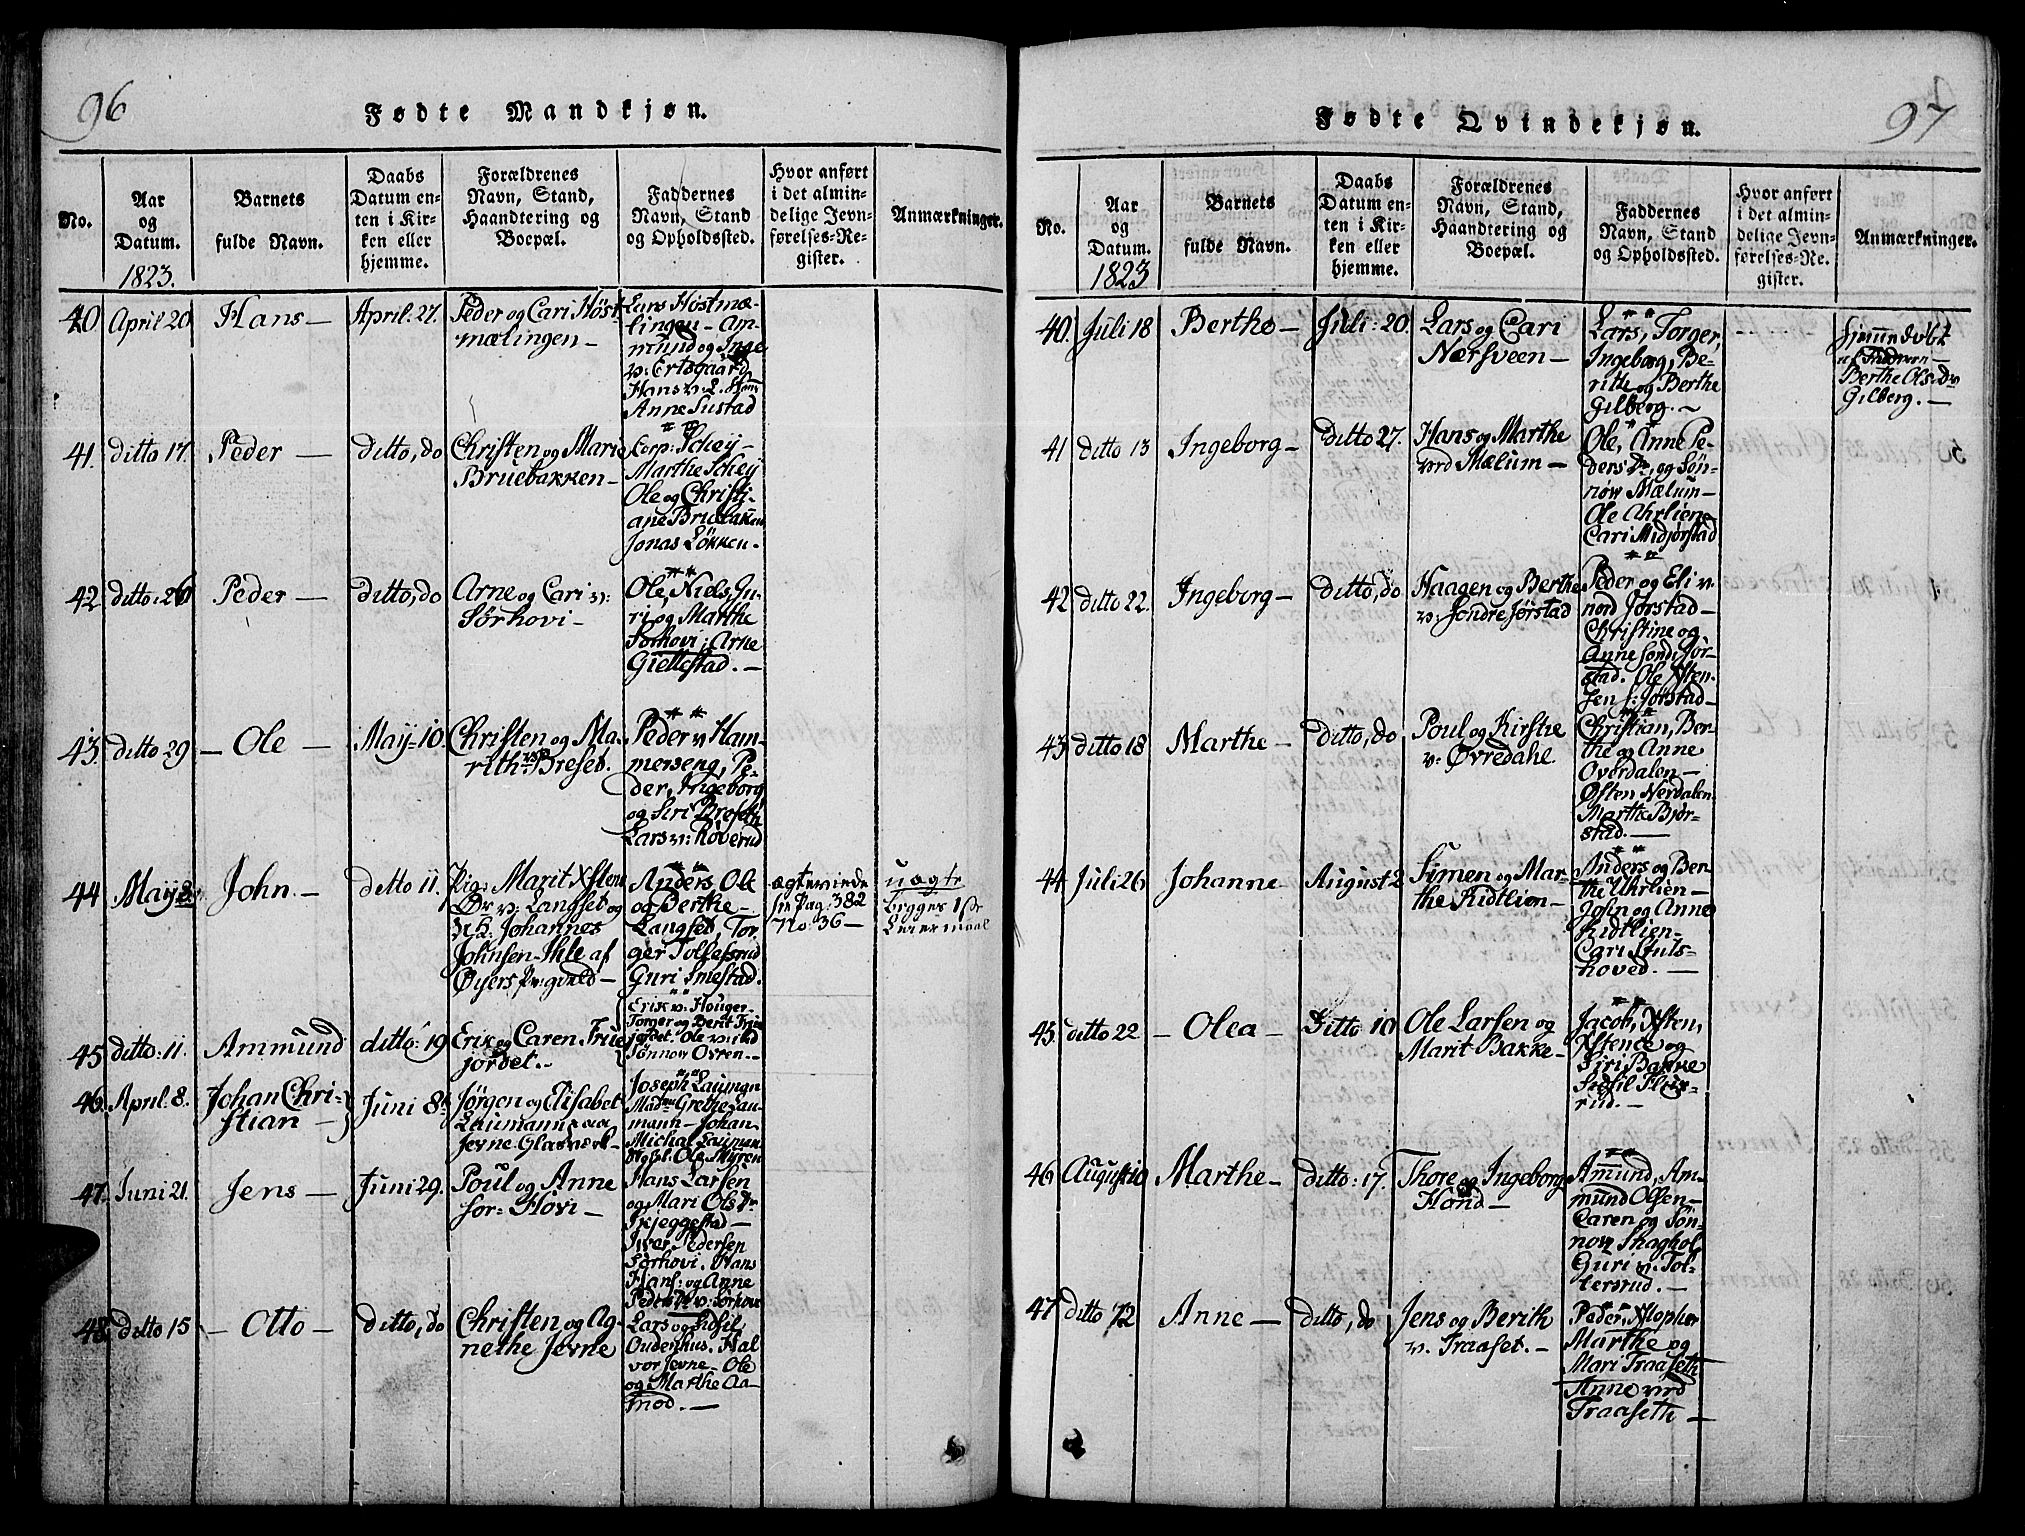 96
Fødte Mandkjøn.
No.
Aar
og
Datum.
1823.
Barnets
fulde Navn.
Daabs
Datum en-
ten i Kir-
ken eller
hjemme.
Forældrenes
Navn, Stand,
Haandtering og
Boepæl.
Faddernes
Navn, Stand
og Opholdssted.
Hvor anført
i det almin-
delige Jevn-
førelses-Re-
gister.
Anmærkninger.
40. April 20 Hans — April. 27.
Peder og Cari Høst-
mælingen —
Lars Høstmæ-
lingen — Am-
mund og Inge
v: Ertsgaard
Hans v:
Anne Sustad
41. ditto 17. Peder — ditto, do
Christen og Marie
Bruebakken —
Corp: Schey —
Marthe Schey
Ole og Christi-
ane Bruebakken
Jonas Løkken.
42. ditto: 26 Peder — ditto, do
Arne og Cari v:
Sørhovi —
Ole, Niels, Gu-
ri og Marthe
Sørhovi; Arne
Giellestad. —
43. ditto 29 — Ole — May- 10.
Christen og Ma-
rith v: Breset.
Peder v: Ham-
merseng, Pe-
der, Ingeborg
og Siri Breseth
Lars v: Røverud
44 May 8. John. — ditto 11.
Pig: Marit Xstens
Dr v: Langset og
Johannes
Johnsen Ihle af
Øyers
Anders, Ole
og Berthe
Langset, Tor-
ger Tollefsrud
Guri Smestad.
ægteviede
se Pag: 382
No: 36 —
uægte
begges 1ste
Leiermaal
45. ditto: 11. Ammund ditto: 19
Erik og Caren Frue
jordet. —
Erik v: Houger
Torger og Berit Frue
jordet. Ole
Sønnow Ovren —
46. April: 8. Johan Chri-
stian — Juni 8.
Jørgen og Elisabet
Laumann
Jevne Glasværk —
Joseph Lauman
Mad: Grethe Lau-
mann — Johan
Michal Lauman
Ole Myren
47. Juni 21. Jens — Juni 29.
Poul og Anne
Sør: Hovi —
Hans Larsen
og Mari Ols: Dr
Skjeggestad —
Iwar Pedersen
Sørhovi. Hans
Hans: og Anne
Peders: Dr v: Sørhovi
48. ditto 15 — Otto — ditto, do
Christen og Ag-
nethe Jevne
Lars og Sidsil
Ouderhus. Hal
vor Jevne — Ole
og Marthe Aa-
mod. —
Fødte Qvindekjøn.
97
No.
Aar
og
Datum.
1823
Barnets
fulde Navn.
Daabs
Datum en-
ten i Kir-
ken eller
hjemme.
Forældrenes
Navn, Stand,
Haandtering og
Boepæl.
Faddernes
Navn, Stand
og Opholdssted.
Hvor anført
i det almin-
delige Jevn-
førelses-Re-
gister.
Anmærkninger.
40. Juli 18 Berthe — Juli: 20.
Lars og Cari
Nærsveen —
Lars, Torger,
Ingeborg, Be-
ritte og Berthe
Gilberg. —
hjemmedøbt
af
Berthe Ols: Dr
Gilberg. —
41 ditto 13 Ingeborg — ditto 27.
Hans og Marthe
nrd Mælum —
Ole, Anne Pe-
ders Dr, og Søn-
nøw Mælum —
Ole Uhrlien
Cari Midjørstad
42 ditto 22. Ingeborg — ditto, do
Haagen og Berthe
v: Søndre Jørstad
Peder og Eli v:
nord Jørstad —
Christine og
Anne Sønd: Jør-
stad. Ole Xsten-
sen s: Jørstad —
43 ditto 18 Marthe — ditto, do
Poul og Kirsthe
v: Øvredahl.
Christian, Ber-
the og Anne
Overdalen —
Østen Nerdalen
Marthe Bjør-
stad. —
44 Juli 26 Johanne — August 2
Simen og Mar-
the Kidtlien —
Anders og Ber-
the Uhrlien —
John og Anne
Kidtlien —
Cari Stuls-
hoved. —
45. ditto 22 — Olea — ditto 10
Ole Larsen og
Marit Bakke —
Jacob, Xsten,
Xstence og
Siri Bakke
Sidsil
rud. —
46 August 10 Marthe — ditto: 17.
Thore og Ingeborg
Hond —
Amund, Am-
mund Olsen —
Caren og Søn-
now Skaghol
Guri v: Tol-
lersrud. —
47 ditto 12 Anne — ditto, do
Jens og Berith
v: Traaset. —
Peder, Xstopher
Marthe og
Mari Traaseth
Anne nrd
Traaseth —